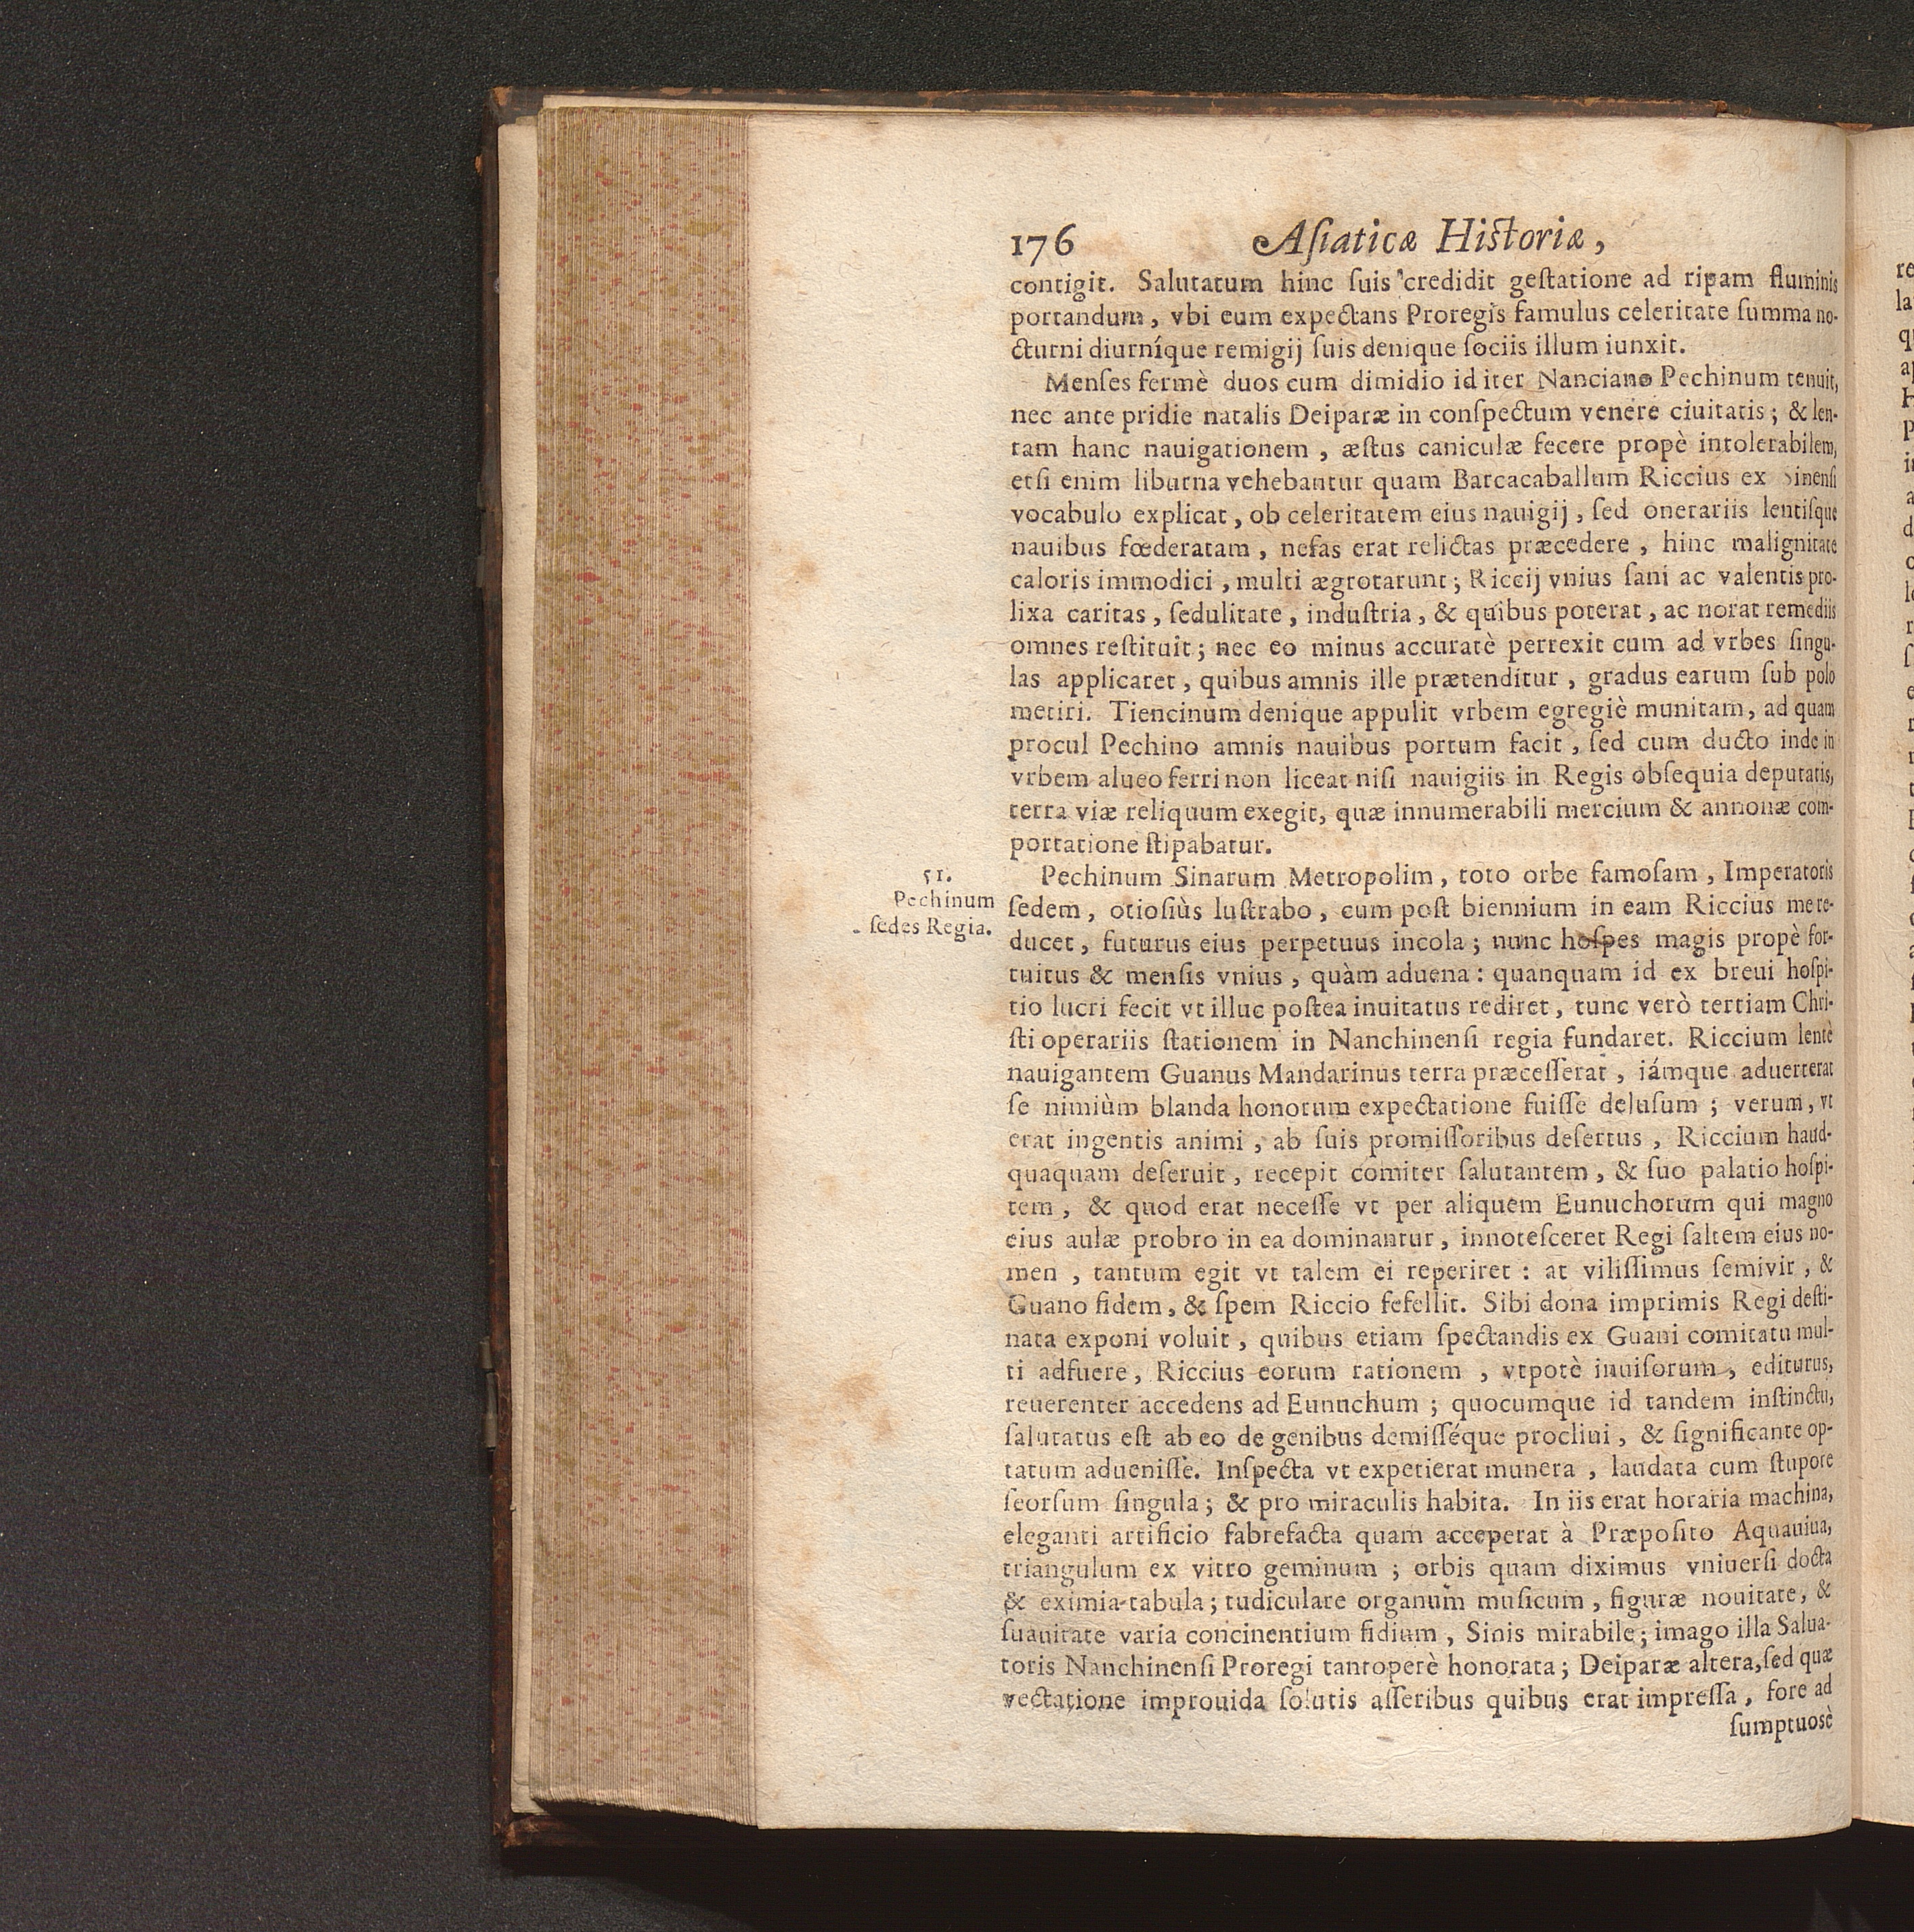 176 Aſiaticæ Hiſtoriæ,
contigit. Salutatum hinc ſuis credidit geſtatione ad ripam fluminis
portandum, vbi eum expectans Proregis famulus celeritate ſumma no-
cturni diurníque remigij ſuis denique ſociis illum iunxit.
Menſes fermè duos cum dimidio id iter Nanciano Pechinum tenuit,
nec ante pridie natalis Deiparæ in conſpectum venére ciuitatis; & len-
tam hanc nauigationem, æſtus caniculæ fecere propè intolerabilem,
etſi enim liburna vehebantur quam Barcacaballum Riccius ex Sinenſi
vocabulo explicat, ob celeritatem eius nauigij, ſed onerariis lentiſque
nauibus fœderatam, nefas erat relictas præcedere, hinc malignitate
caloris immodici, multi ægrotarunt; Riccij vnius ſani ac valentis pro-
lixa caritas, ſedulitate, induſtria, & quibus poterat, ac norat remediis
omnes reſtituit; nec eo minus accuratè perrexit cum ad vrbes ſingu-
las applicaret, quibus amnis ille prætenditur, gradus earum ſub polo
metiri. Tiencinum denique appulit vrbem egregiè munitam, ad quam
procul Pechino amnis nauibus portum facit, ſed cum ducto inde in
vrbem alueo ferri non liceat niſi nauigiis in Regis obſequia deputatis,
terra viæ reliquum exegit, quæ innumerabili mercium & annonæ com-
portatione ſtipabatur.
51.
Pechinum
ſedes Regia.
Pechinum Sinarum Metropolim, toto orbe famoſam, Imperatoris
ſedem, otioſiùs luſtrabo, cum poſt biennium in eam Riccius me re-
ducet, futurus eius perpetuus incola; nunc hoſpes magis propè for-
tuitus & menſis vnius, quàm aduena: quanquam id ex breui hoſpi-
tio lucri fecit vt illuc poſtea inuitatus rediret, tunc verò tertiam Chri-
ſti operariis ſtationem in Nanchinenſi regia fundaret. Riccium lentè
nauigantem Guanus Mandarinus terra præceſſerat, iámque aduerterat
ſe nimiùm blanda honorum expectatione fuiſſe deluſum; verum, vt
erat ingentis animi, ab ſuis promiſſoribus deſertus, Riccium haud-
quaquam deſeruit, recepit comiter ſalutantem, & ſuo palatio hoſpi-
tem, & quod erat neceſſe vt per aliquem Eunuchorum qui magno
eius aulæ probro in ea dominantur, innoteſceret Regi ſaltem eius no-
men, tantum egit vt talem ei reperiret: at viliſſimus ſemivir, &
Guano fidem, & ſpem Riccio fefellit. Sibi dona imprimis Regi deſti-
nata exponi voluit, quibus etiam ſpectandis ex Guani comitatu mul-
ti adfuere, Riccius eorum rationem, vtpotè inuiſorum, editurus,
reuerenter accedens ad Eunuchum; quocumque id tandem inſtinctu,
ſalutatus eſt ab eo de genibus demiſſéque procliui, & ſignificante op-
tatum adueniſſe. Inſpecta vt expetierat munera, laudata cum ſtupore
ſeorſum ſingula; & pro miraculis habita. In iis erat horaria machina,
eleganti artificio fabrefacta quam acceperat à Præpoſito Aquauiua,
triangulum ex vitro geminum; orbis quam diximus vniuerſi docta
& eximia tabula; tudiculare organum muſicum, figuræ nouitate, &
ſuauitate varia concinentium fidium, Sinis mirabile; imago illa Salua-
toris Nanchinenſi Proregi tantoperè honorata; Deiparæ altera, ſed quæ
vectatione improuida ſolutis aſſeribus quibus erat impreſſa, fore ad
ſumptuosè